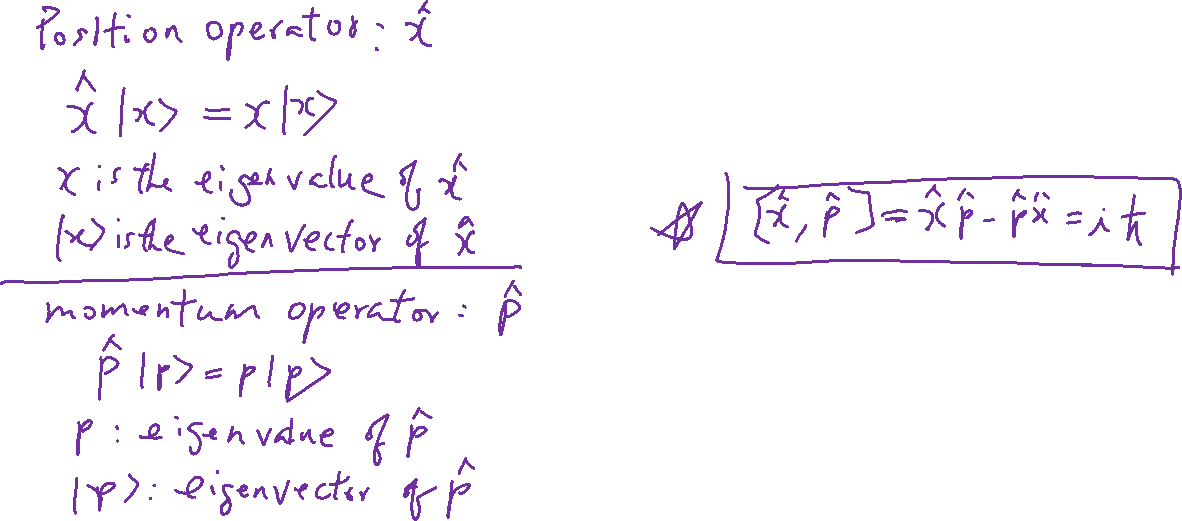 Position operator: x̂
x̂ |x> = x |x>
x is the eigenvalue of x̂
|x> is the eigenvector of x̂
[x̂, p̂] = x̂ p̂ - p̂ x̂ = i ħ
momentum operator: p̂
p̂ |p> = p |p>
p : eigenvalue of p̂
|p> : eigenvector of p̂